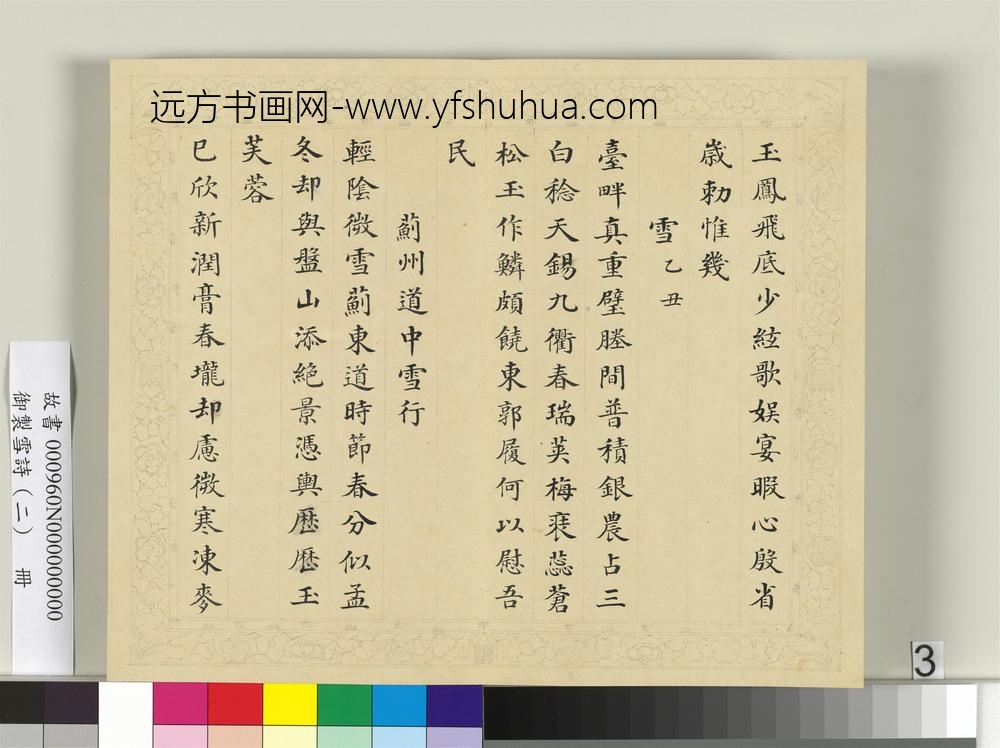 远方书画网-www.yfshuhua.com
玉鳳飛底少絃歌娱宴暇心殷省
歲勅惟幾
雪乙丑
臺畔真重璧塍間普積銀農占三
白稔天錫九衢春瑞英梅蕊蒼
松玉作鱗頗饒東郭履何以慰吾
民
薊州道中雪行
輕陰微雪薊東道時節春分似孟
冬却與盤山添絶景憑輿歷歷玉
芙蓉
已欣新潤膏春壠却慮微寒凍麥
故書000960N000000000
御製雪詩（二） 冊
3